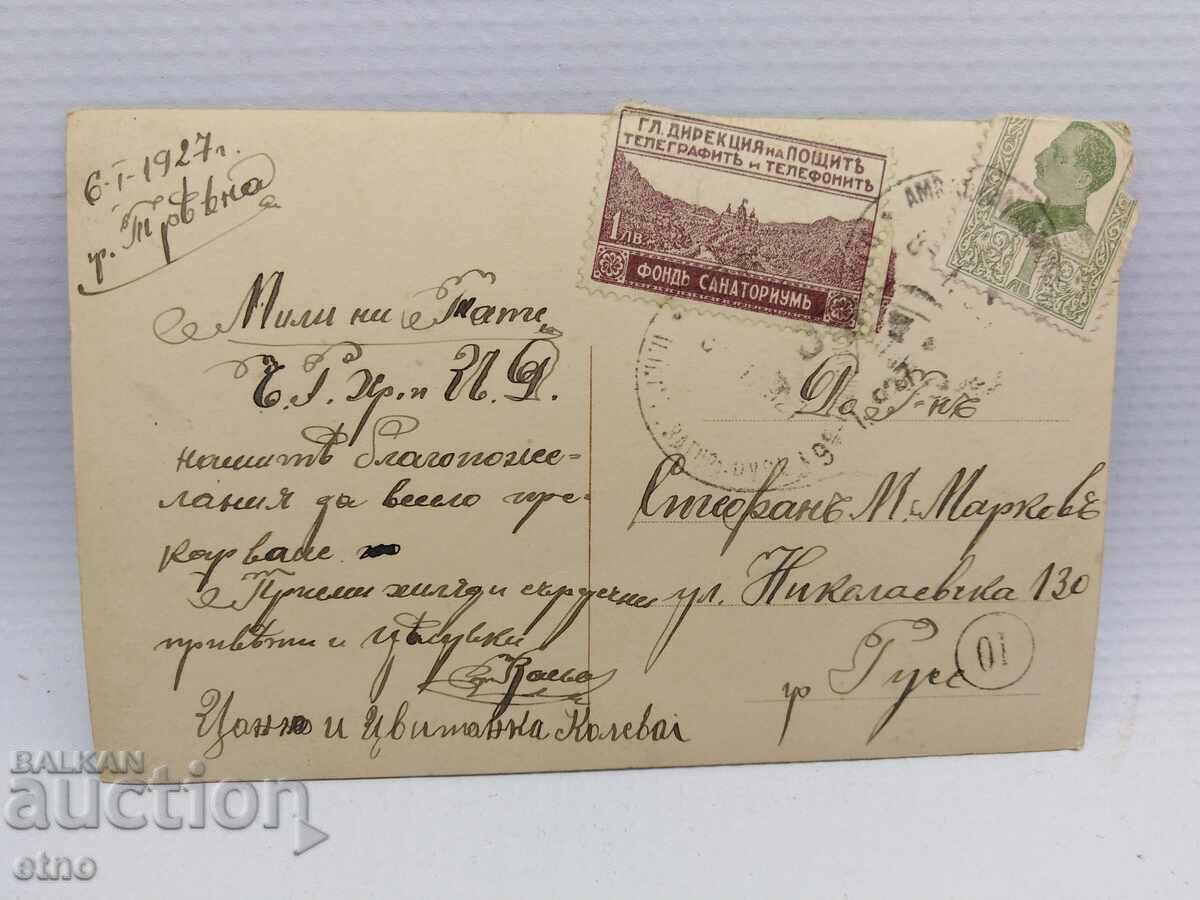 6-I-1927 г.
гр. Трѣвна
Мили ни Тати
Ч. Р. Хр. и И. Д.
нашитѣ благопоже-
лания да весело пре-
карване
Приеми хиляди сърдечни
привѣти и цѣлувки
Цонко и Цвитанка Колеваи
ГЛ. ДИРЕКЦИЯ НА ПОЩИТѢ
ТЕЛЕГРАФИТѢ И ТЕЛЕФОНИТѢ
1 ЛВ.
ФОНДЪ САНАТОРИУМЪ
До Г-нъ
Стефанъ М. Марковъ
ул. Николаевска 130
гр Русе
10
BALKAN
auction
etno